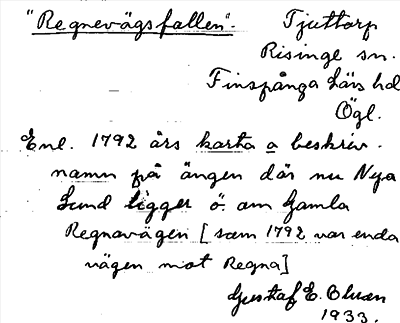 "Regnevägsfallen". Tjuttorp
Risinge sn.
Finspånga läns hd
Ögl.
Enl. 1792 års karta o beskriv.
namn på ängen där nu Nya
Lund ligger ö. om Gamla
Regnavägen [som 1792 var enda
vägen mot Regna]
Gustaf E. Olsson
1933.